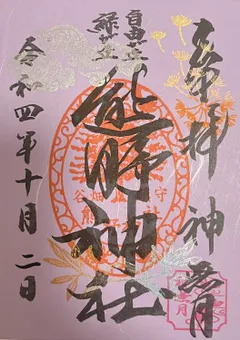 奉拝 神無月
自由が丘
緑が丘
熊野神社
令和四年十月二日